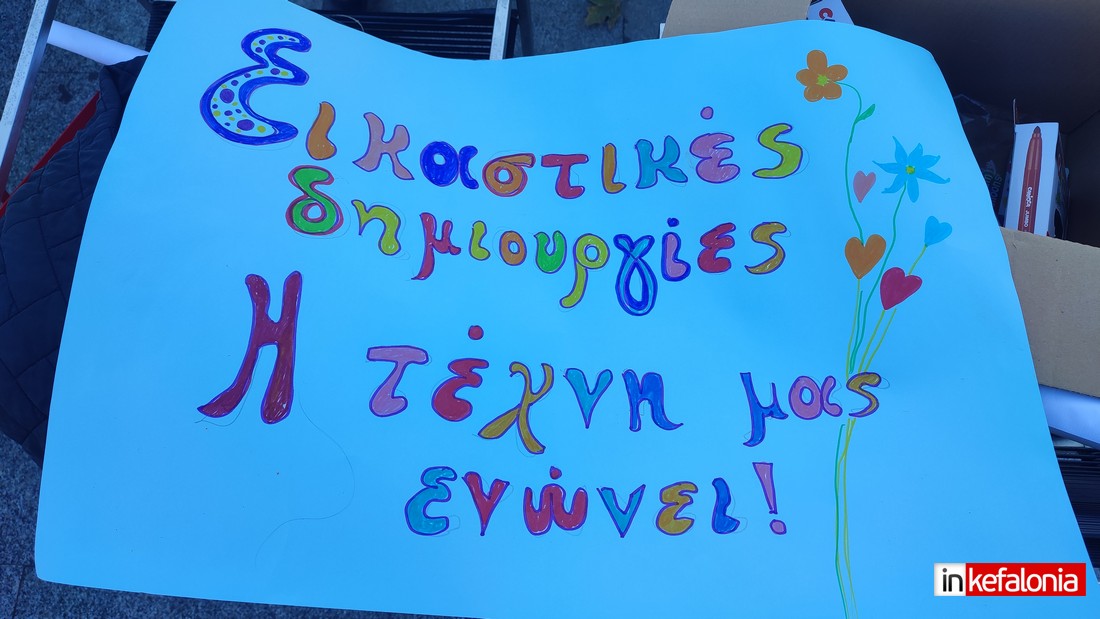 Εικαστικές
δημιουργίες
Η τέχνη μας
ενώνει!
inkefalonia